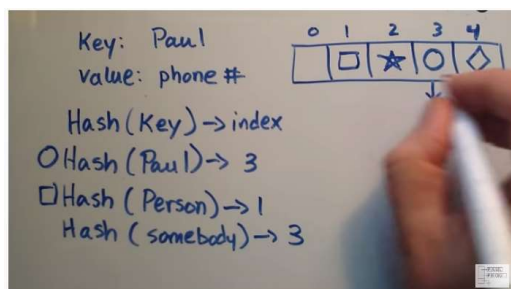 Key: Paul
value: phone #
0 1 2 3 4
Hash (Key) → index
Hash (Paul) → 3
Hash (Person) → 1
Hash (somebody) → 3